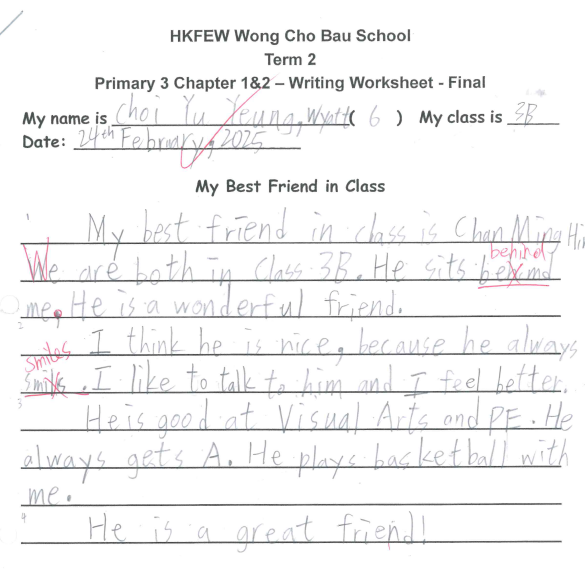 HKFEW Wong Cho Bau School
Term 2
Primary 3 Chapter 1&2 – Writing Worksheet - Final
My name is Choi Yu Yeung, Wyatt( 6 ) My class is 3B
Date: 24th February, 2025
My Best Friend in Class
1
My best friend in class is Chan Ming Hin
behind
We are both in Class 3B. He sits
me. He is a wonderful friend.
2
I think he is nice, because he always
smiles
. I like to talk to him and I feel better.
3
He is good at Visual Arts and PE. He
always gets A. He plays basketball with
me.
4
He is a great friend!